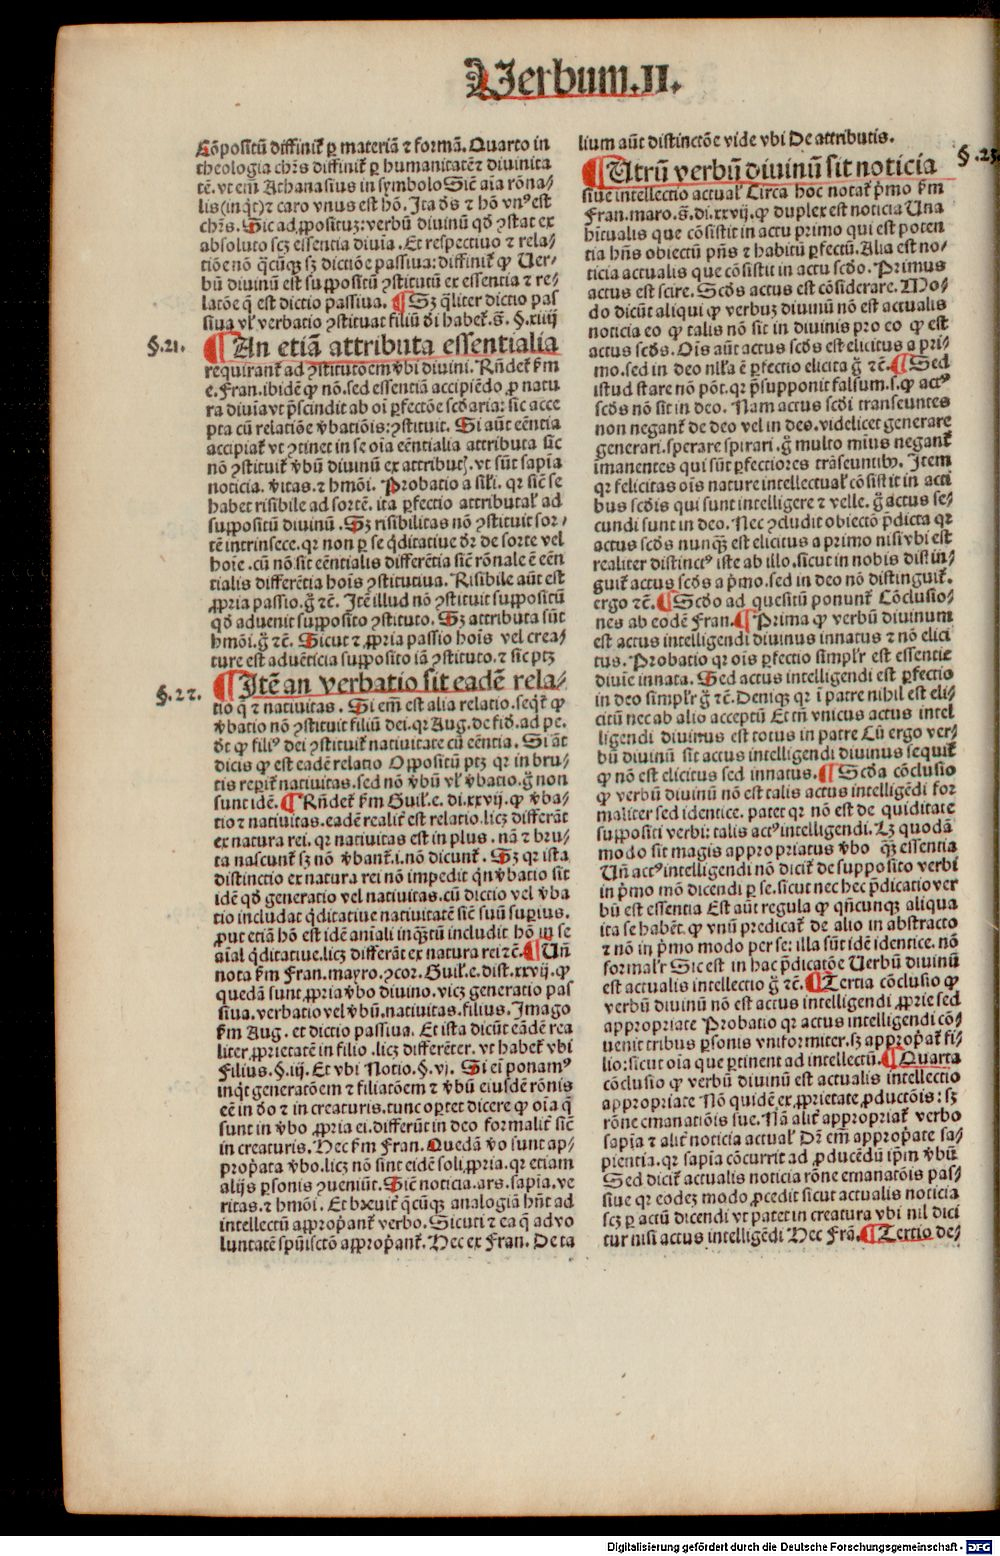 Uerbum.II.
Cōpositū diffinit᷑ ꝑ materiā ⁊ formā. Quarto in
theologia chrs̄ diffinit᷑ ꝑ humanitatē⁊ diuinita
tē. vt em̄ Athanasius in symbolo Sic̄ aīa rōna⸗
lis(inq̇t)⁊ caro vnus est hō. Ita ds̄ ⁊ hō vnꝰ est
chrs̄. Sic ad ꝓposituꝫ: verbū diuinū qd̄ ꝯstat ex
absoluto scꝫ essentia diuīa. Et respectiuo ⁊ rela⸗
tiōe nō q̄cūqꝫ sꝫ dictiōe passiua: diffinit᷑ ꝙ Uer⸗
bū diuinū est suppositū ꝯstitutū ex essentia ⁊ re⸗
latōe q̄ est dictio passiua. ¶ Sꝫ q̄liter dictio pas
siua vl̓ verbatio ꝯstituat filiū dei habet᷑. s̄. §. xiiij
§.21.
¶ An etiā attributa essentialia
requirant᷑ ad ꝯstitutōem v̓bi diuini. Rn̄det᷑ ẜm
e. Fran. ibidē ꝙ nō. sed essentiā accipiēdo ꝓ natu
ra diuīa vt p̄scindit ab oī ꝑfectōe scd̄aria: sic acce
pta cū relatiōe v̓batiōis: ꝯstituit. Si aūt eēntia
accipiat᷑ vt ꝯtinet in se oīa eēntialia attributa sic̄
nō ꝯstituit᷑ v̓bū diuinū ex attributꝭ. vt sūt sapīa
noticia. v̓itas. ⁊ hmōi. Probatio a sil̓i. qꝛ sic̄ se
habet risibile ad sortē. ita ꝑfectio attributal̓ ad
suppositū diuinū. Sꝫ risibilitas nō ꝯstituit sor⸗
tē intrinsece. qꝛ non ꝑ se q̇ditatiue dr̄ de sorte vel
hoīe. cū nō sit eēntialis differētia sic̄ rōnale ē eēn
tialis differētia hoīs ꝯstitutiua. Risibile aūt est
ꝓpria passio. g̊ ⁊c̄. Itē illud nō ꝯstituit suppositū
qd̄ aduenit supposito ꝯstituto. Sꝫ attributa sūt
hmōi. g̊ ⁊c̄. Sicut ⁊ ꝓpria passio hoīs vel crea⸗
ture est aduēticia supposito iā ꝯstituto. ⁊ sic ptꝫ
§.22.
¶ Itē an verbatio sit eadē rela⸗
tio q̄ ⁊ natiuitas. Si em̄ est alia relatio. seqt᷑ ꝙ
v̓batio nō ꝯstituit filiū dei. qꝛ Aug. de fid. ad pe.
dt̄ ꝙ filiꝰ dei ꝯstituit᷑ natiuitate cū eēntia. Si āt
dicis ꝙ est eadē relatio Oppositū ptꝫ qꝛ in bru⸗
tis reꝑit᷑ natiuitas. sed nō v̓bū vl̓ v̓batio. g̊ non
sunt idē. ¶ Rn̄det᷑ ẜm Guil̓. e. di. xxvij. ꝙ v̓ba⸗
tio ⁊ natiuitas. eadē realit᷑ est relatio. licꝫ differāt
ex natura rei. qꝛ natiuitas est in plus. nā ⁊ bru⸗
ta nascunt᷑ sꝫ nō v̓bant᷑. i. nō dicunt᷑. Sꝫ qꝛ ista
distinctio ex natura rei nō impedit qn̄ v̓batio sit
idē qd̄ generatio vel natiuitas. cū dictio vel v̓ba
tio includat q̇ditatiue natiuitatē sic̄ suū suꝑius.
ꝓut etiā hō est idē aīali inqꝫtū includit hō in se
aīal q̇ditatiue. licꝫ differāt ex natura rei ⁊c̄. ¶ Un̄
nota ẜm Fran. mayro. ꝯcor. Guil̓. e. dist. xxvij. ꝙ
quedā sunt ꝓpria v̓bo diuino. vicꝫ generatio pas
siua. verbatio vel v̓bū. natiuitas. filius. Imago
ẜm Aug. et dictio passiua. Et ista dicūt eādē rea
liter ꝓprietatē in filio. licꝫ differēter. vt habet᷑ vbi
Filius. §. iij. Et vbi Notio. §. vj. Si ei̓ ponamꝰ
inq̇t generatōem ⁊ filiatōem ⁊ v̓bū eiusdē rōnis
eē in deo ⁊ in creaturis. tunc oꝑtet dicere ꝙ oīa q̄
sunt in v̓bo ꝓpria ei. differūt in deo formalit᷑ sic̄
in creaturis. Hec ẜm Fran. Quedā v̓o sunt ap⸗
prop̄ata v̓bo. licꝫ nō sint eidē soli ꝓpria. qꝛ etiam
alijs ꝑsonis ꝯueniūt. Sic̄ noticia. ars. sapīa. ve
ritas. ⁊ hmōi. Et breuit᷑ q̄cūqꝫ analogiā hn̄t ad
intellectū approp̄ant᷑ verbo. Sicuti ⁊ ea q̄ ad vo
luntatē spūiscto approp̄ant᷑. Hec ex Fran. De ta
lium aūt distinctōe vide vbi De attributis.
§.23.
¶ Utrū verbū diuinū sit noticia
siue intellectio actual̓ Circa hoc notat᷑ p̄mo ẜm
Fran. maro. s̄. di. xxvij. ꝙ duplex est noticia Una
hītualis que cōsistit in actu primo qui est poten
tia hn̄s obiectū pn̄s ⁊ habitū ꝑfectū. Alia est no⸗
ticia actualis que cōsistit in actu scd̄o. Primus
actus est scire. Scds̄ actus est cōsiderare. Mo⸗
do dicūt aliqui ꝙ verbuꝫ diuinū nō est actualis
noticia eo ꝙ talis nō sit in diuinis pro eo ꝙ est
actus scds̄. Oīs aūt actus scds̄ est elicitus a pri⸗
mo. sed in deo nll̓a ē ꝑfectio elicita g̊ ⁊c̄. ¶ Sed
istud stare nō pōt. qꝛ p̄supponit falsum. s. ꝙ actꝰ
scds̄ nō sit in deo. Nam actus scdi transeuntes
non negant᷑ de deo vel in des. videlicet generare
generari. sperare spirari. g̊ multo min̄us negant᷑
īmanentes qui sūt ꝑfectiores trāseuntibꝰ. Item
qꝛ felicitas oīs nature intellectual̓ cōsistit in acti
bus scdis̄ qui sunt intelligere ⁊ velle. g̊ actus se⸗
cundi sunt in deo. Nec ꝯcludit obiectō p̄dicta qꝛ
actus scds̄ nunqꝫ est elicitus a primo nisi vbi est
realiter distinctꝰ iste ab illo. sicut in nobis distin⸗
guit᷑ actus scds̄ a p̄mo. sed in deo nō distinguit᷑.
ergo ⁊c̄. ¶ Scdo ad quesitū ponunt᷑ Cōclusio⸗
nes ab eodē Fran. ¶ Prima ꝙ verbū diuinum
est actus intelligendi diuinus innatus ⁊ nō elici
tus. Probatio qꝛ oīs ꝑfectio simpl̓r est essentie
diuīe innata. Sed actus intelligendi est ꝑfectio
in deo simpl̓r g̊ ⁊c̄. Deniqꝫ qꝛ ī patre nihil est eli⸗
citū nec ab alio acceptū Et tn̄ vnicus actus intel
ligendi diuinus est totus in patre Cū ergo ver⸗
bū diuinū sit actus intelligendi diuinus sequit᷑
ꝙ nō est elicitus sed innatus. ¶ Scd̄a cōclusio
ꝙ verbū diuinū nō est talis actus intelligēdi for
maliter sed identice. patet qꝛ nō est de quiditate
suppositi verbi: talis actꝰ intelligendi. Lꝫ quodā
modo sit magis appropriatus v̓bo qꝫ essentia
Un̄ actꝰ intelligendi nō dicit᷑ de supposito verbi
in p̄mo mō dicendi ꝑ se. sicut nec hec p̄dicatio ver
bū est essentia Est aūt regula ꝙ qn̄cunqꝫ aliqua
ita se habēt. ꝙ vnū predicat᷑ de alio in abstracto
⁊ nō in p̄mo modo per se: illa sūt idē identice. nō
formal̓r Sic est in hac p̄dicatōe Uerbū diuinū
est actualis intellectio g̊ ⁊c̄. ¶ Tertia cōclusio ꝙ
verbū diuinū nō est actus intelligendi ꝓprie sed
appropriate Probatio qꝛ actus intelligendi cō⸗
uenit tribus ꝑsonis vniformiter. sꝫ approp̄at᷑ fi⸗
lio: sicut oīa que ꝑtinent ad intellectū. ¶ Quarta
cōclusio ꝙ verbū diuinū est actualis intellectio
appropriate Nō quidē ex ꝓprietate ꝓductōis: sꝫ
rōne emanatiōis sue. Nā alit᷑ appropriat᷑ verbo
sapīa ⁊ alit᷑ noticia actual̓ Dr̄ em̄ approp̄ate sa⸗
pientia. qꝛ sapīa cōcurrit ad ꝓducēdū ip̄m v̓bū
Sed dicit᷑ actualis noticia rōne emanatōis pas⸗
siue qꝛ eodeꝫ modo ꝓcedit sicut actualis noticia
scꝫ ꝑ actū dicendi vt patet in creatura vbi nil dici
tur nisi actus intelligēdi Hec Frā. ¶ Tertio de⸗
Digitalisierung gefördert durch die Deutsche Forschungsgemeinschaft - DFG